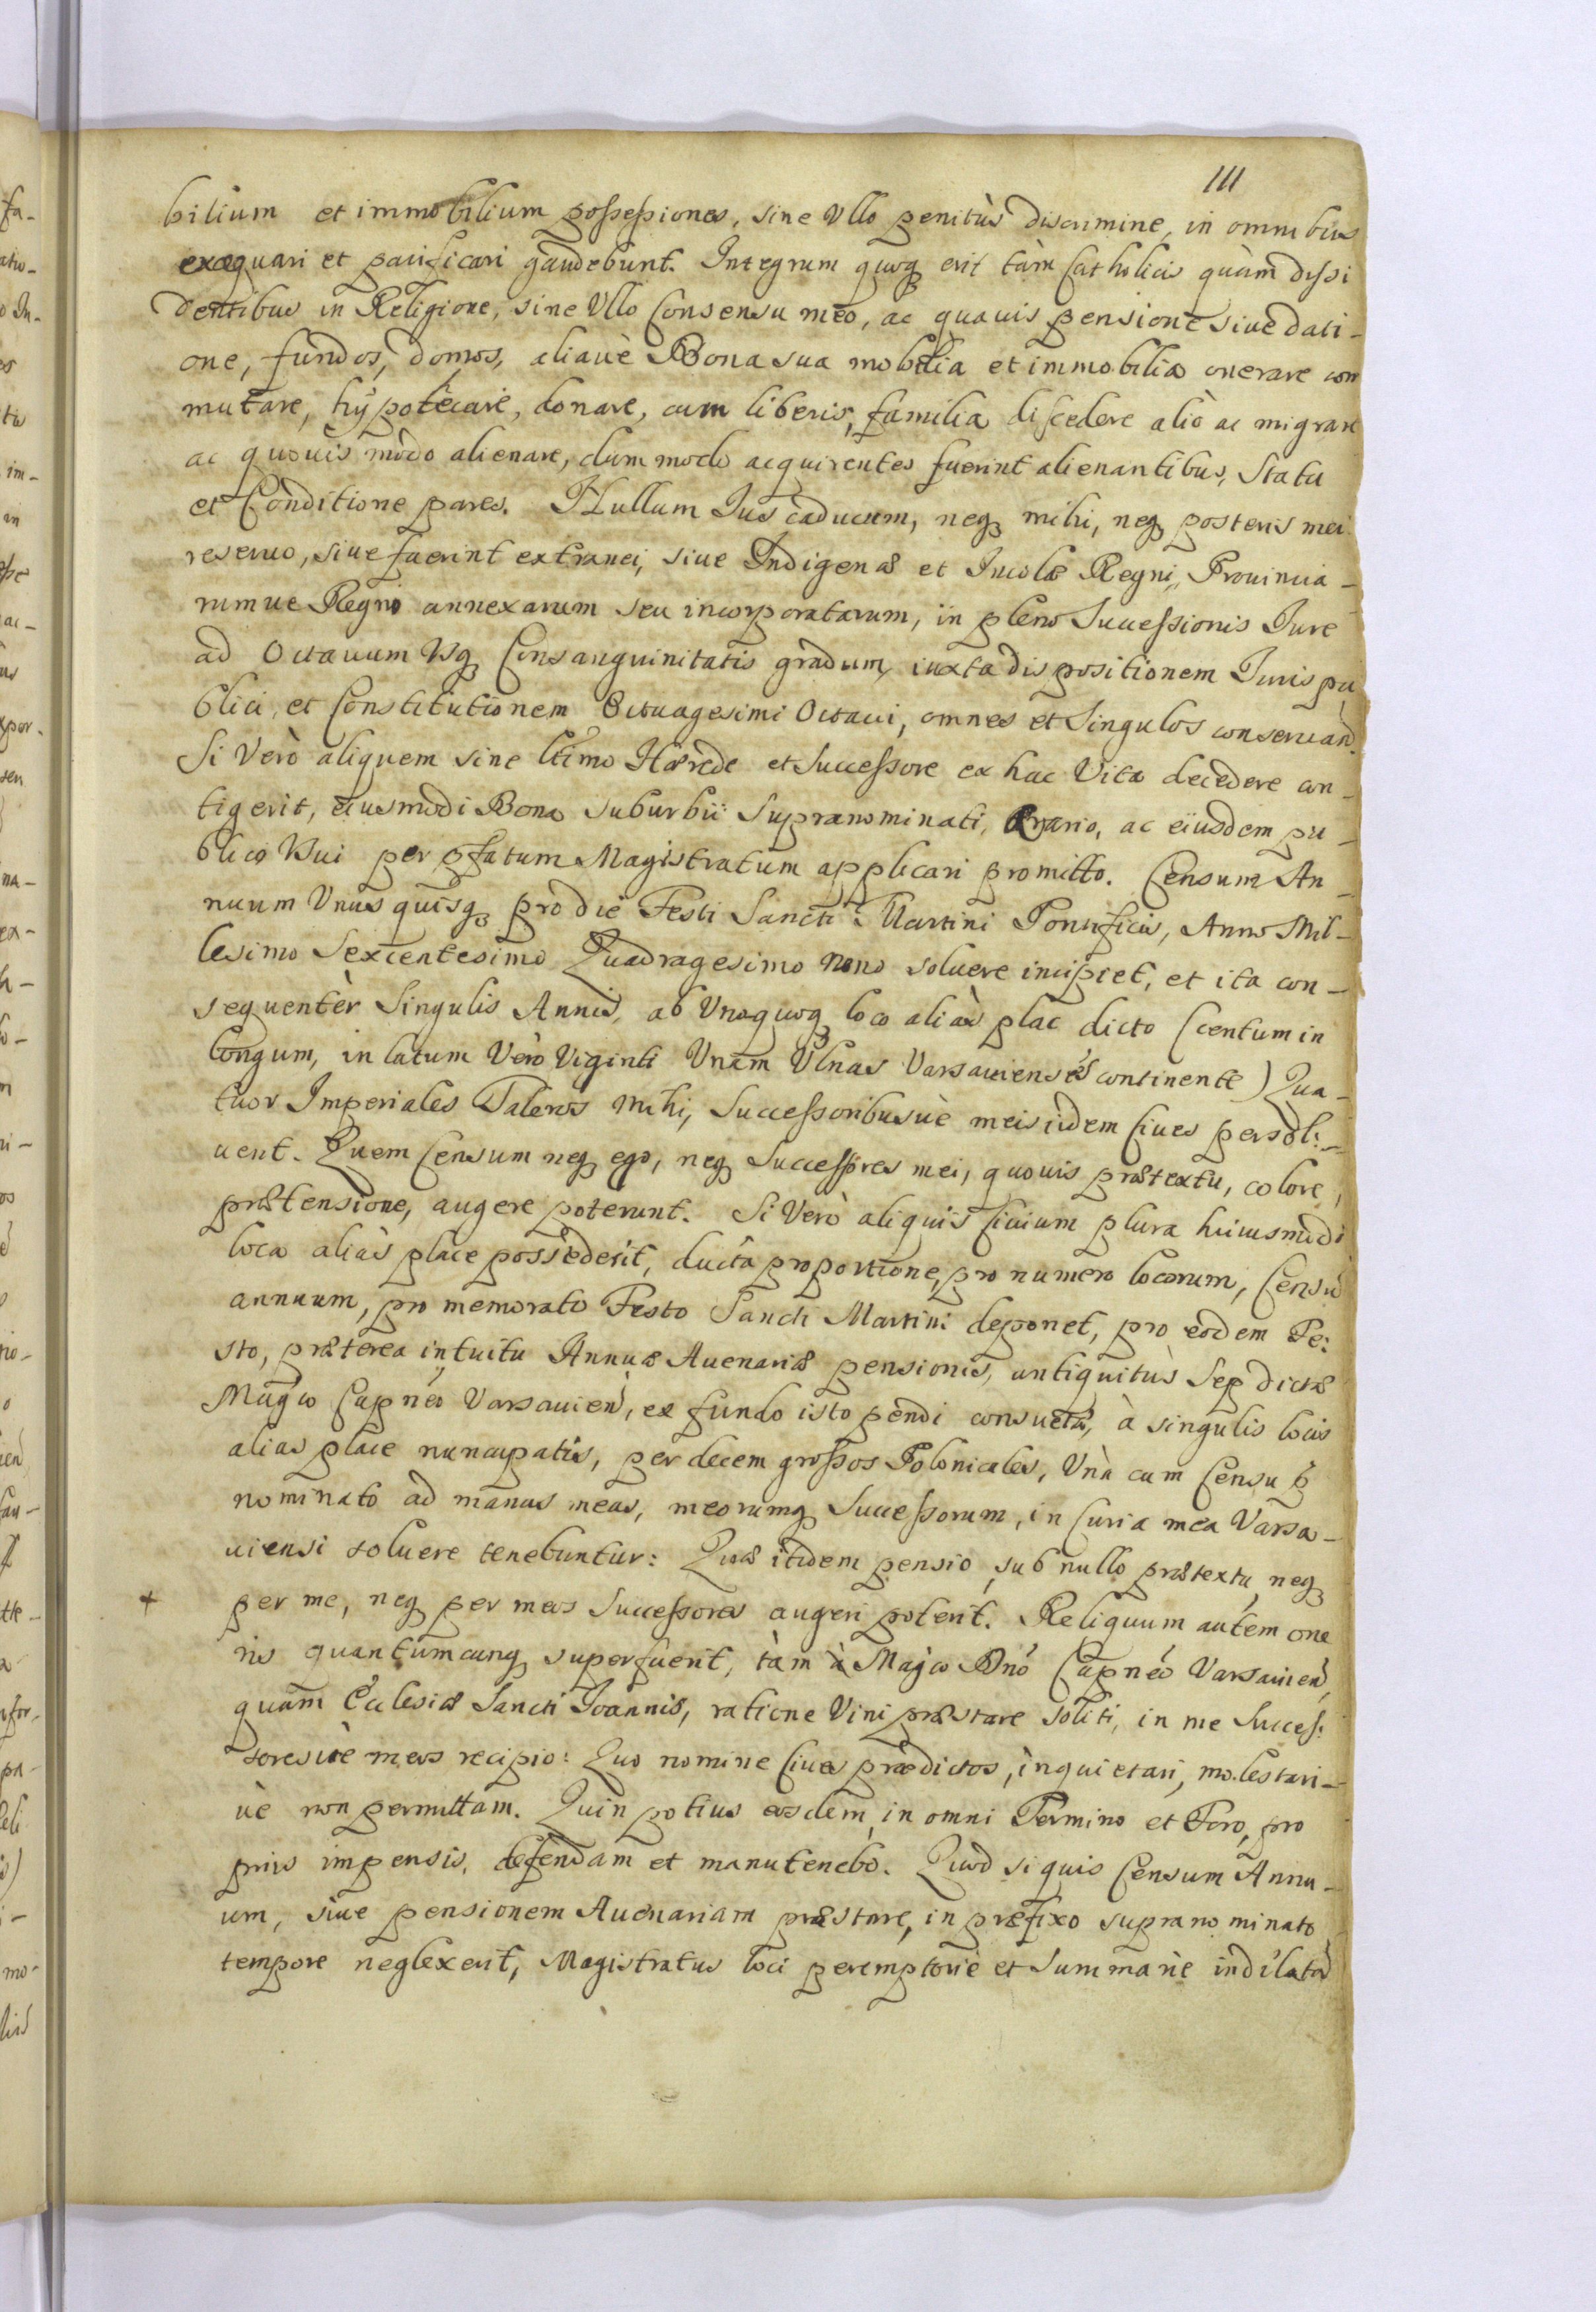 111
bilium et immobilium possessiones, sine Ullo penitùs discrimine, in omnibus
exæquari et parificari gaudebunt. Integrum quoq erit tàm Catholicis quàm dissi
dentibus in Religione, sine Ullo Consensu meo, ac quavis pensione siue dati-
one, fundos, domos, aliauè Bona sua mobilia et immobilia onerare com
mutare, hÿpotecare, donare, cum liberis, familia discedere aliò ac migrare
ac quouis modo alienare, dummodo acquirentes fuerint alienantibus, Statu
et Conditione pares. Nullum Jus caducum, neq mihi, neq posteris meis
reseruo, siue fuerint extranei, siue Indigenæ et Incolæ Regni, Prouincia-
rumue Regno annexarum seu incorporatarum, in pleno Successionis Jure
ad Octauum Usq Consanguinitatis gradum, iuxta dispositionem Juris pu
blici, et Constitutionem Octuagesimi Octaui, omnes et Singulos conseruand.
Si Verò aliquem sine ltimo Hærede et Successore ex hac Vita decedere con-
tigerit, eiusmodi Bona suburbii Supranominati, Ærario, ac eiusdem pu-
blico Usui per pfatum Magistratum applicari promitto. Censum An-
nuum Unusquisq pro die Festi Sancti Martini Pontificis, Anno Mil-
lesimo Sexcentesimo Quadragesimo nono soluere incipiet, et ita con-
sequentèr Singulis Annis, ab Unoquoq loco aliàs plac dicto (centum in
longum, in latum Verò Viginti Unam Ulnas Varsauienses continente) Qua-
tuor Imperiales Taleros mihi, Successoribusuè meis iidem Ciues persol:-
uent. Quem Censum neq ego, neq Successores mei, quouis prætextu, colore,
prætensione, augere poterunt. Si Verò aliquis Ciuium plura huiusmodi
loca aliàs place possederit, ducta proportione, pro numero locorum, Censũ
annuum, pro memorato Festo Sancti Martini deponet, pro eodem Fe:
sto, præterea intuitu Annuæ Auenariæ pensionis, antiquitùs Sep dictæ
Magco Capneo Varsauien, ex fundo isto pendi consuetæ, à singulis locis
alias place nuncupatis, per decem grossos Polonicales, Unà cum Censu p
nominato ad manus meas, meorumq Successorum, in Curia mea Varsa-
uiensi soluere tenebuntur: Quæ itidem pensio, sub nullo prætextu, neq
+ per me, neq per meos Successores augeri poterit. Reliquum autem one
ris quantumcunq superfuerit, tàm à Magco Dnó Capnéo Varsauien,
quam Ecclesiæ Sancti Joannis, ratione Vini præstare soliti, in me Succes:
soresuè meos recipio: Quo nomine Ciues prædictos, inquietari, molestari-
uè non permittam. Quin potius eosdem, in omni Termino et Foro, pro
prijs impensis, defendam et manutenebo. Quod si quis Censum Annu-
um, siue pensionem Auenariam præstare, in præfixo supranominato
tempore neglexerit, Magistratus loci peremptoriè et Summariè indilatà